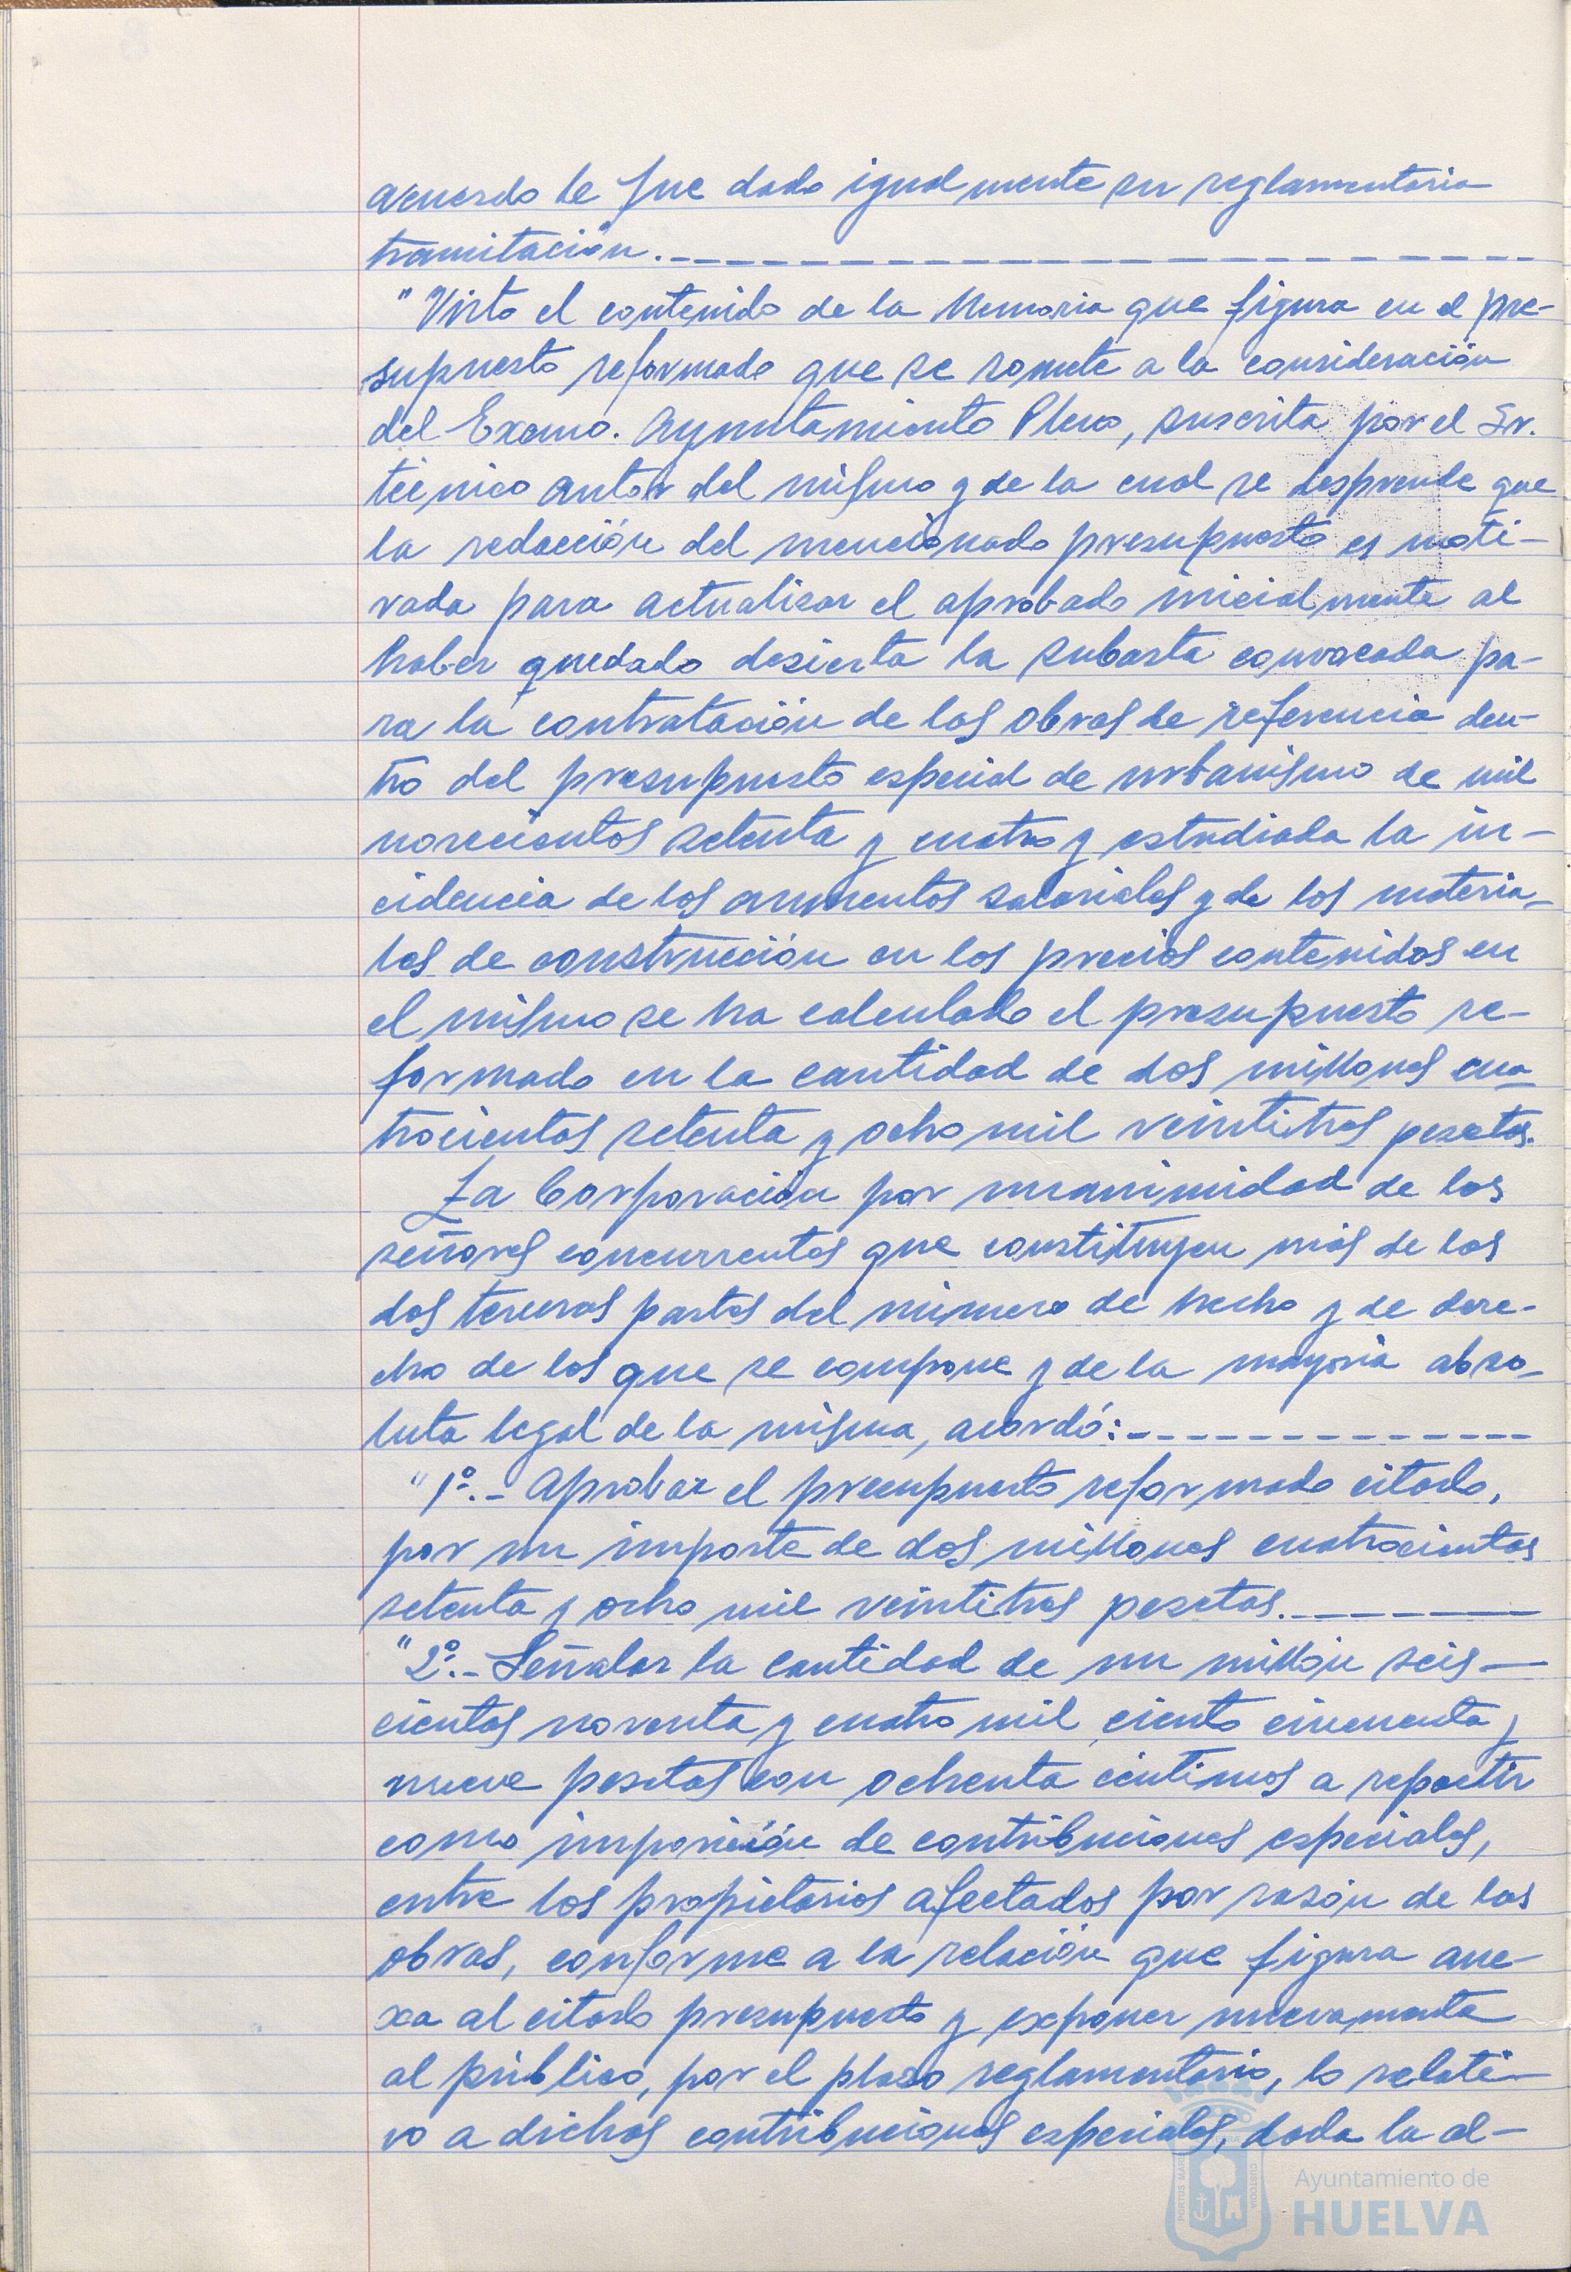 acuerdo le fue dado igualmente su reglamentaria
tramitación.
"Visto el contenido de la Memoria que figura en el pre-
supuesto reformado que se somete a la consideración
del Excmo. Ayuntamiento Pleno, suscrita por el Sr.
técnico autor del mismo y de la cual se desprende que
la redacción del mencionado presupuesto es moti-
vada para actualizar el aprobado inicialmente al
haber quedado desierta la subasta convocada pa-
ra la contratación de las obras de referencia den-
tro del presupuesto especial de urbanismo de mil
novecientos setenta y cuatro y estudiada la in-
cidencia de los aumentos salariales y de los materia-
les de construcción en los precios contenidos en
el mismo se ha calculado el presupuesto re-
formado en la cantidad de dos millones cua-
trocientas setenta y ocho mil veintitres pesetas.
La Corporación por unanimidad de los
señores concurrentes que constituyen más de las
dos terceras partes del número de hecho y de dere-
cho de los que se compone y de la mayoria abso-
luta legal de la misma, acordó:
"1º.- Aprobar el presupuesto reformado citado,
por un importe de dos millones cuatrocientas
setenta y ocho mil veintitres pesetas.
"2º.- Señalar la cantidad de un millón seis-
cientas noventa y cuatro mil ciento cincuenta y
nueve pesetas con ochenta céntimos a repartir
como imposición de contribuciones especiales,
entre los propietarios afectados por razón de las
obras, conforme a la relación que figura ane-
xa al citado presupuesto y exponer nuevamente
al público, por el plazo reglamentario, lo relati-
vo a dichas contribuciones especiales, dada la al-
PORTUS MARIS
CUSTODIA
Ayuntamiento de
HUELVA